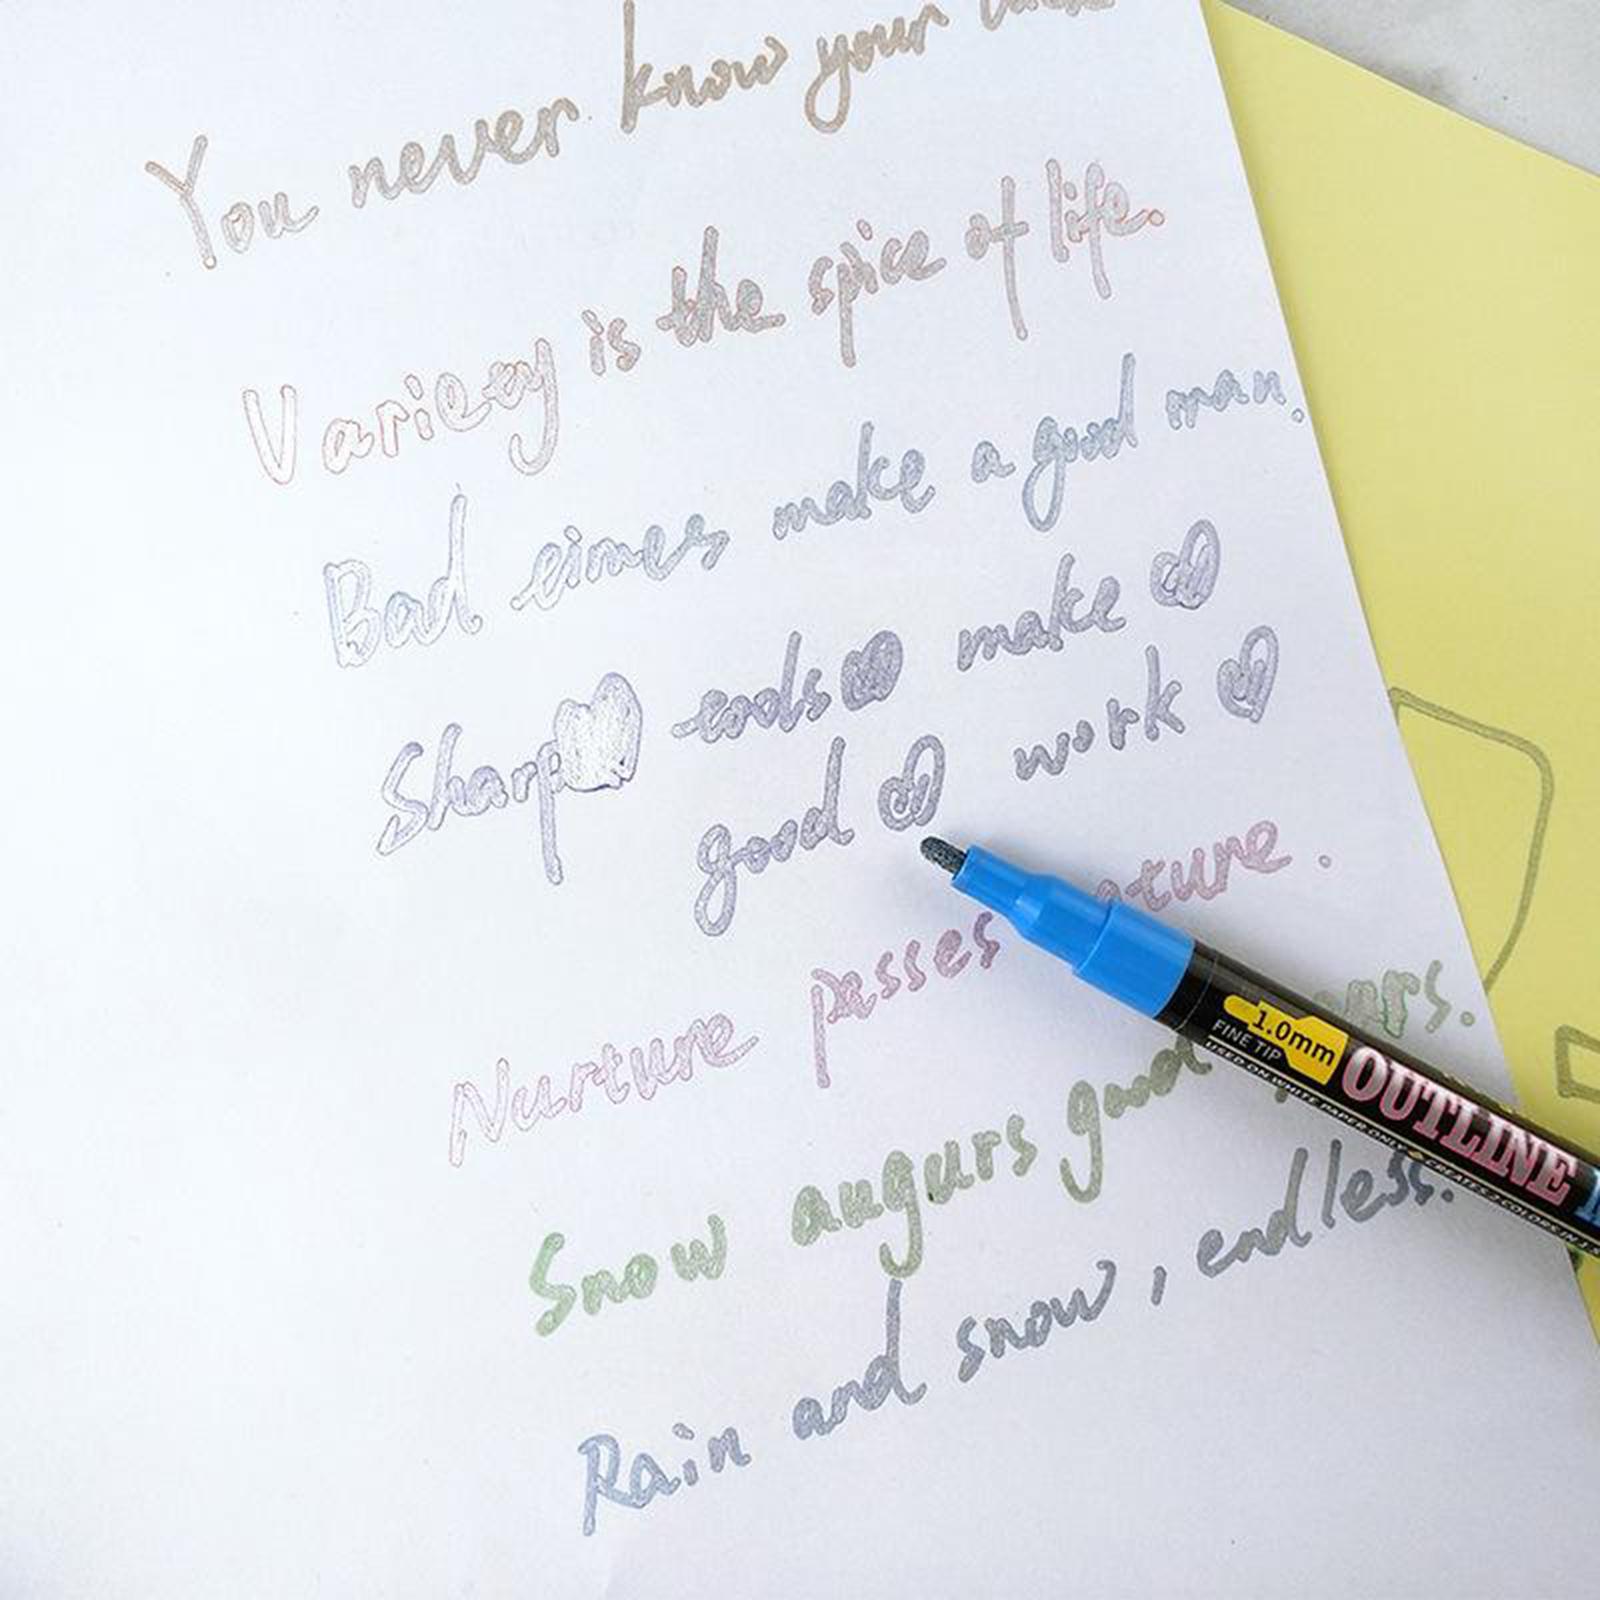 You never know your luck
Variety is the spice of life.
Bad times make a good man.
Sharp tools make
good work
Nurture passes nature.
Snow augurs good
Rain and snow, endless.
1.0mm
FINE TIP
OUTLINE
USED ON WHITE PAPER ONLY CREATES 2 COLORS IN 1